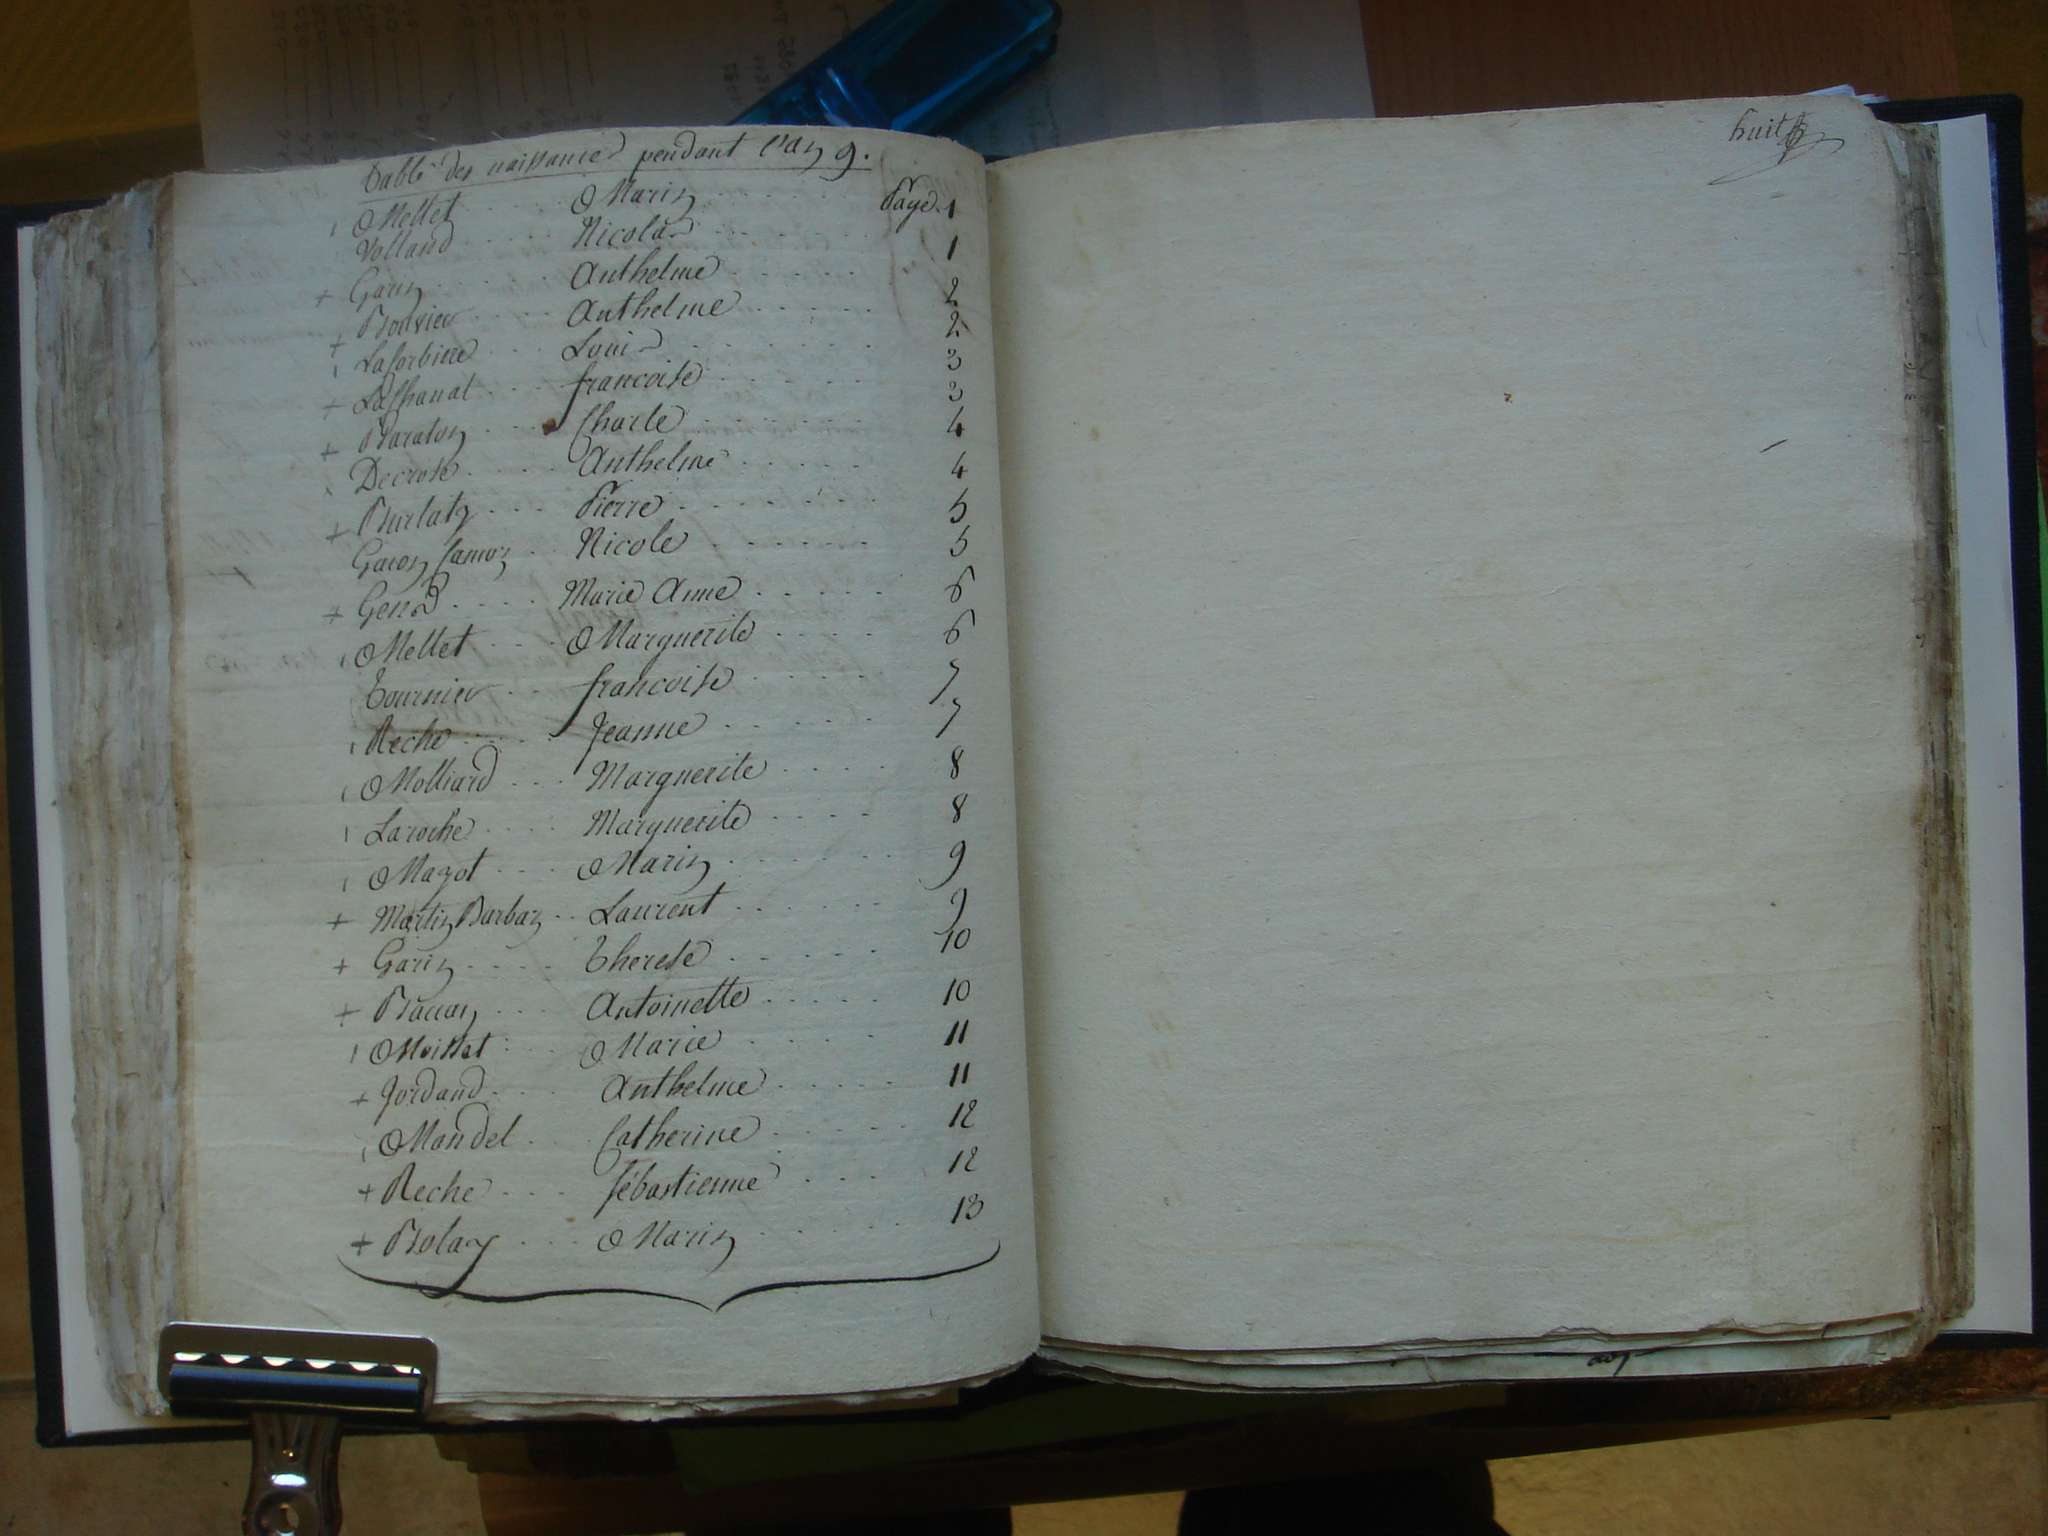 Table des naissances pendant l'an 9.
Mellet Marin Page 1
Volland Nicolas 1
Garin Anthelme 2
Bouvier Anthelme 2
Lacorbiere Louis 3
Lachanal francoise 3
Baraton Charle 4
Decrose Anthelme 4
Burlaty Pierre 5
Garon Camoz Nicole 5
Gend Marie Anne 6
Mellet Marguerite 6
Tournier francoise 7
Reche Jeanne 7
Molliard Marguerite 8
Laroche Marguerite 8
Mazot Marin 9
Martin Barbaz Laurent 9
Garin Therese 10
Antoinette 10
Moisset Marie 11
Jordand Anthelme 11
Mandel Catherine 12
Reche Sébastienne 12
Bolay Marin 13
huit